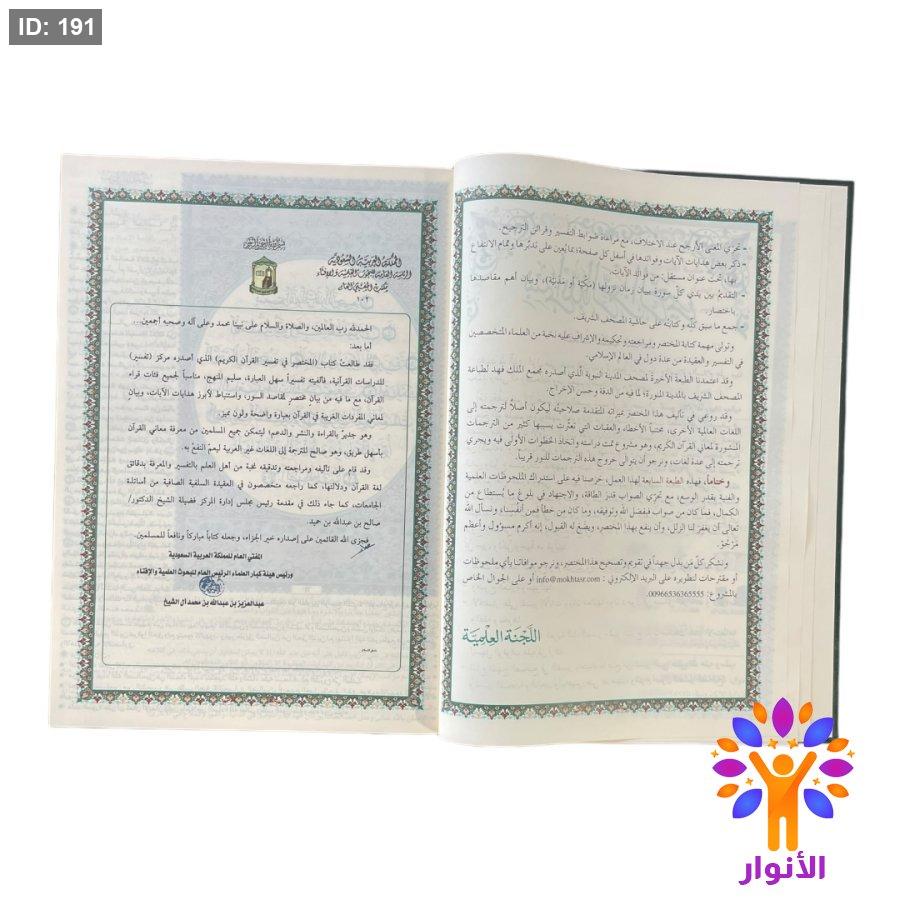 ID: 191
- تحرّي المعنى الأرجح عند الاختلاف، مع مراعاة ضوابط التفسير وقرائن الترجيح.
- ذكر بعض هدايات الآيات وفوائدها في أسفل كل صفحة؛ بما يُعين على تدبُّرها وتمام الانتفاع
بها، تحت عنوان مستقل: من فوائد الآيات.
- التقديم بين يدي كلّ سورة ببيان زمان نزولها (مكّية أو مدنيّة)، وبيان أهم مقاصدها
باختصار.
- جمع ما سبق كلّه وكتابته على حاشية المصحف الشريف.
وتولى مهمة كتابة المختصر ومراجعته وتحكيمه والإشراف عليه نخبة من العلماء المتخصصين
في التفسير والعقيدة من عدة دول في العالم الإسلامي.
وقد اعتمدنا الطبعة الأخيرة لمصحف المدينة النبوية الّذي أصدره مجمع الملك فهد لطباعة
المصحف الشريف بالمدينة المنورة؛ لما فيه من الدقة وحسن الإخراج.
وقد روعي في تأليف هذا المختصر بميزاته المتقدمة صلاحيتُه ليكون أصلاً لترجمته إلى
اللغات العالمية الأخرى، مجتنباً الأخطاء والعقبات التي تعثّرت بسببها كثير من الترجمات
المنشورة لمعاني القرآن الكريم، وهو مشروع تمت دراسته واتخاذ الخطوات الأولى فيه ويجري
ترجمته إلى عدة لغات، ونرجو أن يتوالى خروج هذه الترجمات للنور قريباً.
وختاماً، فهذه الطبعة السابعة لهذا العمل، حرصنا فيه على استدراك الملحوظات العلمية
والفنية بقدر الوسع، مع تحرّي الصواب قدر الطاقة، والاجتهاد في بلوغ ما يُستطاع من
الكمال، فما كان من صواب فبفضل الله وتوفيقه، وما كان من خطأ فمن أنفسنا، ونسأل الله
تعالى أن يغفر لنا الزلل، وأن ينفع بهذا المختصر، ويضع له القبول، إنه أكرم مسؤول وأعظم
مَرْجُوّ.
ونشكر كلّ مَن بذل جهداً في تقويم وتصحيح هذا المختصر، ونرجو موافاتنا بأي ملحوظات
أو مقترحات لتطويره على البريد الإلكتروني : info@mokhtasr.com أو على الجوال الخاص
بالمشروع: 00966536365555.
اللجنة العلمية
المملكة العربية السعودية
الحمدلله رب العالمين، والصلاة والسلام على نبيّنا محمد وعلى آله وصحبه أجمعين...
أما بعد:
فقد طالعتُ كتاب (المختصر في تفسير القرآن الكريم) الذي أصدره مركز (تفسير)
للدراسات القرآنية، فألفيته تفسيراً سهل العبارة، سليم المنهج، مناسباً لجميع فئات قراء
القرآن، مع ما فيه من بيان مختصر لمقاصد السور، واستنباط لأبرز هدايات الآيات، وبيان
لمعاني المفردات الغريبة في القرآن بعبارة واضحة ولون مميز.
وهو جديرٌ بالقراءة والنشر والدعم؛ ليتمكن جميع المسلمين من معرفة معاني القرآن
بأسهل طريق، وهو صالح للترجمة إلى اللغات غير العربية ليعمّ النفع به.
وقد قام على تأليفه ومراجعته وتدقيقه نخبة من أهل العلم بالتفسير والمعرفة بدقائق
لغة القرآن ودلالتها، كما راجعه متخصصون في العقيدة السلفية الصافية من أساتذة
الجامعات، كما جاء ذلك في مقدمة رئيس مجلس إدارة المركز فضيلة الشيخ الدكتور/
صالح بن عبدالله بن حميد.
فجزى الله القائمين على إصداره خير الجزاء، وجعله كتاباً مباركاً ونافعاً للمسلمين.
المفتي العام للمملكة العربية السعودية
ورئيس هيئة كبار العلماء الرئيس العام للبحوث العلمية والإفتاء
عبدالعزيز بن عبدالله بن محمد آل الشيخ
الأنوار